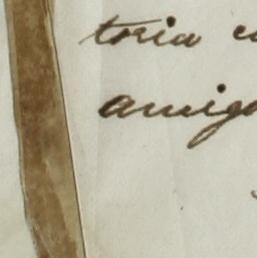 toria
amigo